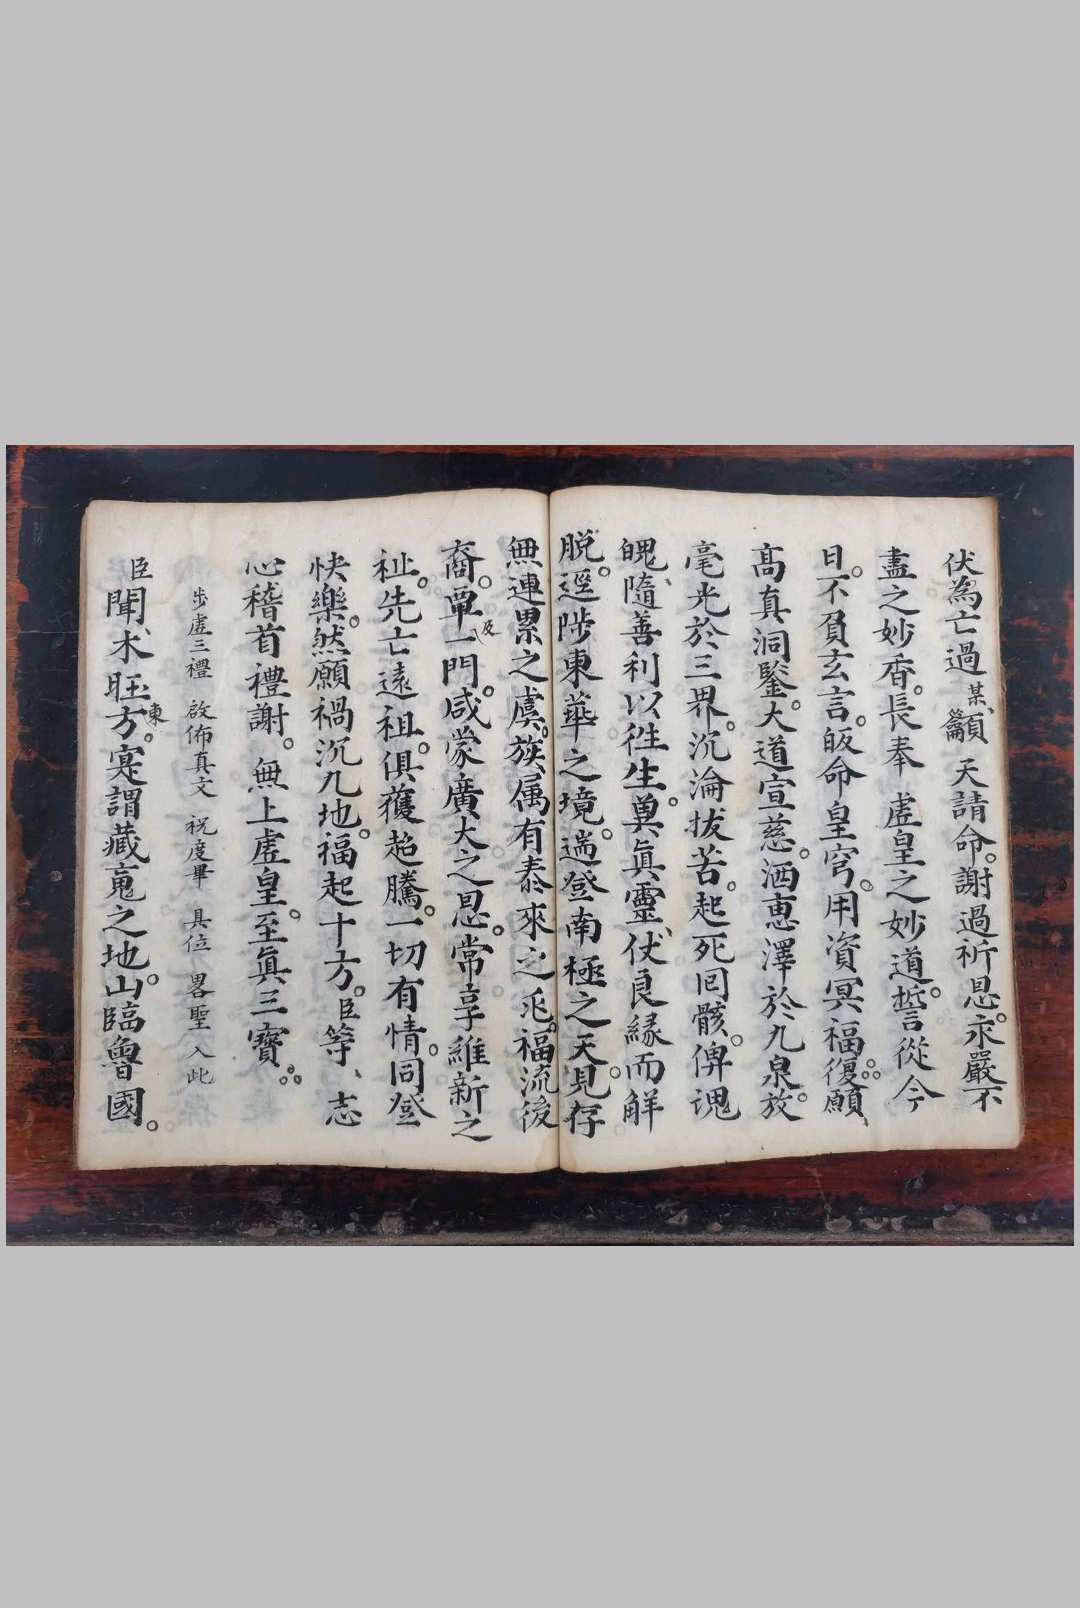 伏為亡過某籲 天請命。謝過祈恩。永嚴不
盡之妙香。長奉 虛皇之妙道。誓從今
日。不負玄言。皈命皇穹。用資冥福。復願
髙真洞鑒。大道宣慈。洒恵澤於九泉。放
毫光於三界。沉淪拔苦。起死囘骸。俾䰟
魄隨善利以徃生。奠眞靈伏良縁而觧
脱。逕陟東華之境。遄登南極之天。見存
無連累之虞。族属有泰來之兆。福流後
裔。覃及一門。咸蒙廣大之恩。常享維新之
祉。先亡遠祖。俱獲超騰。一切有情。同登
快樂。然願禍沉九地。福起十方。臣等、志
心稽首禮謝。無上虛皇。至眞三寳。
步虛三禮 啟佈真文 祝度畢 具位 畧聖 入此
臣聞、木旺東方。寔謂藏䰟之地。山臨魯國。